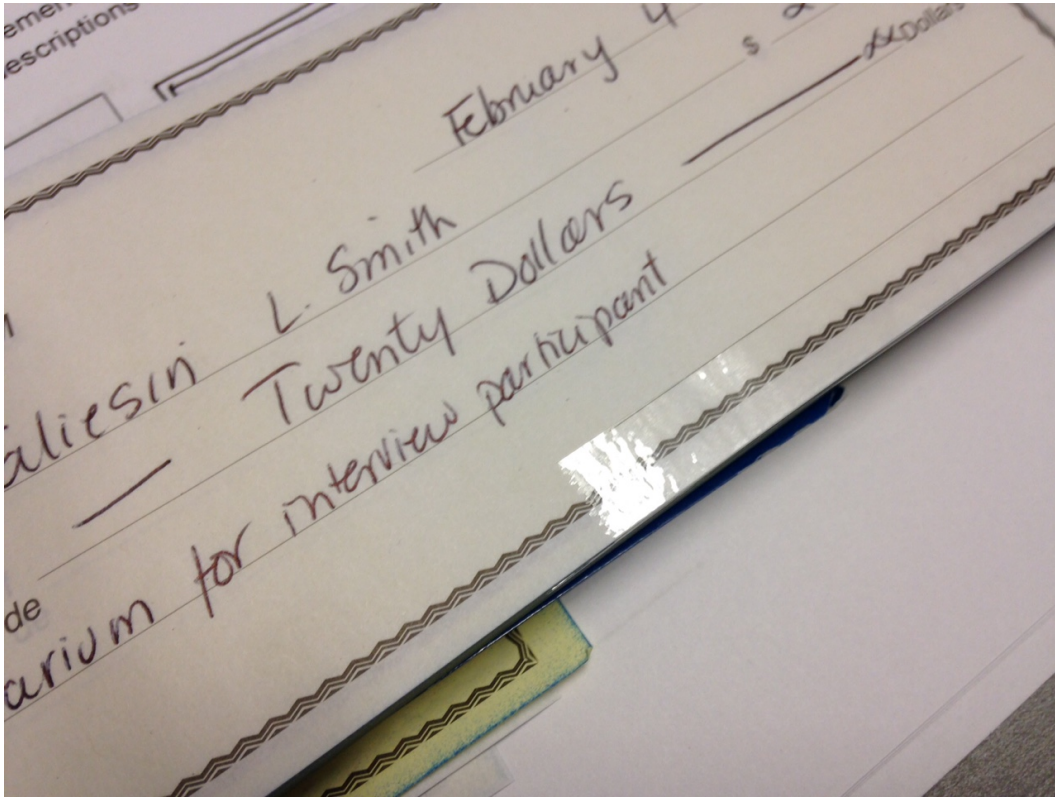 escriptions
February 4
$ 2
Dollars
aliesin L. Smith
— Twenty Dollars —
de
arium for interview participant